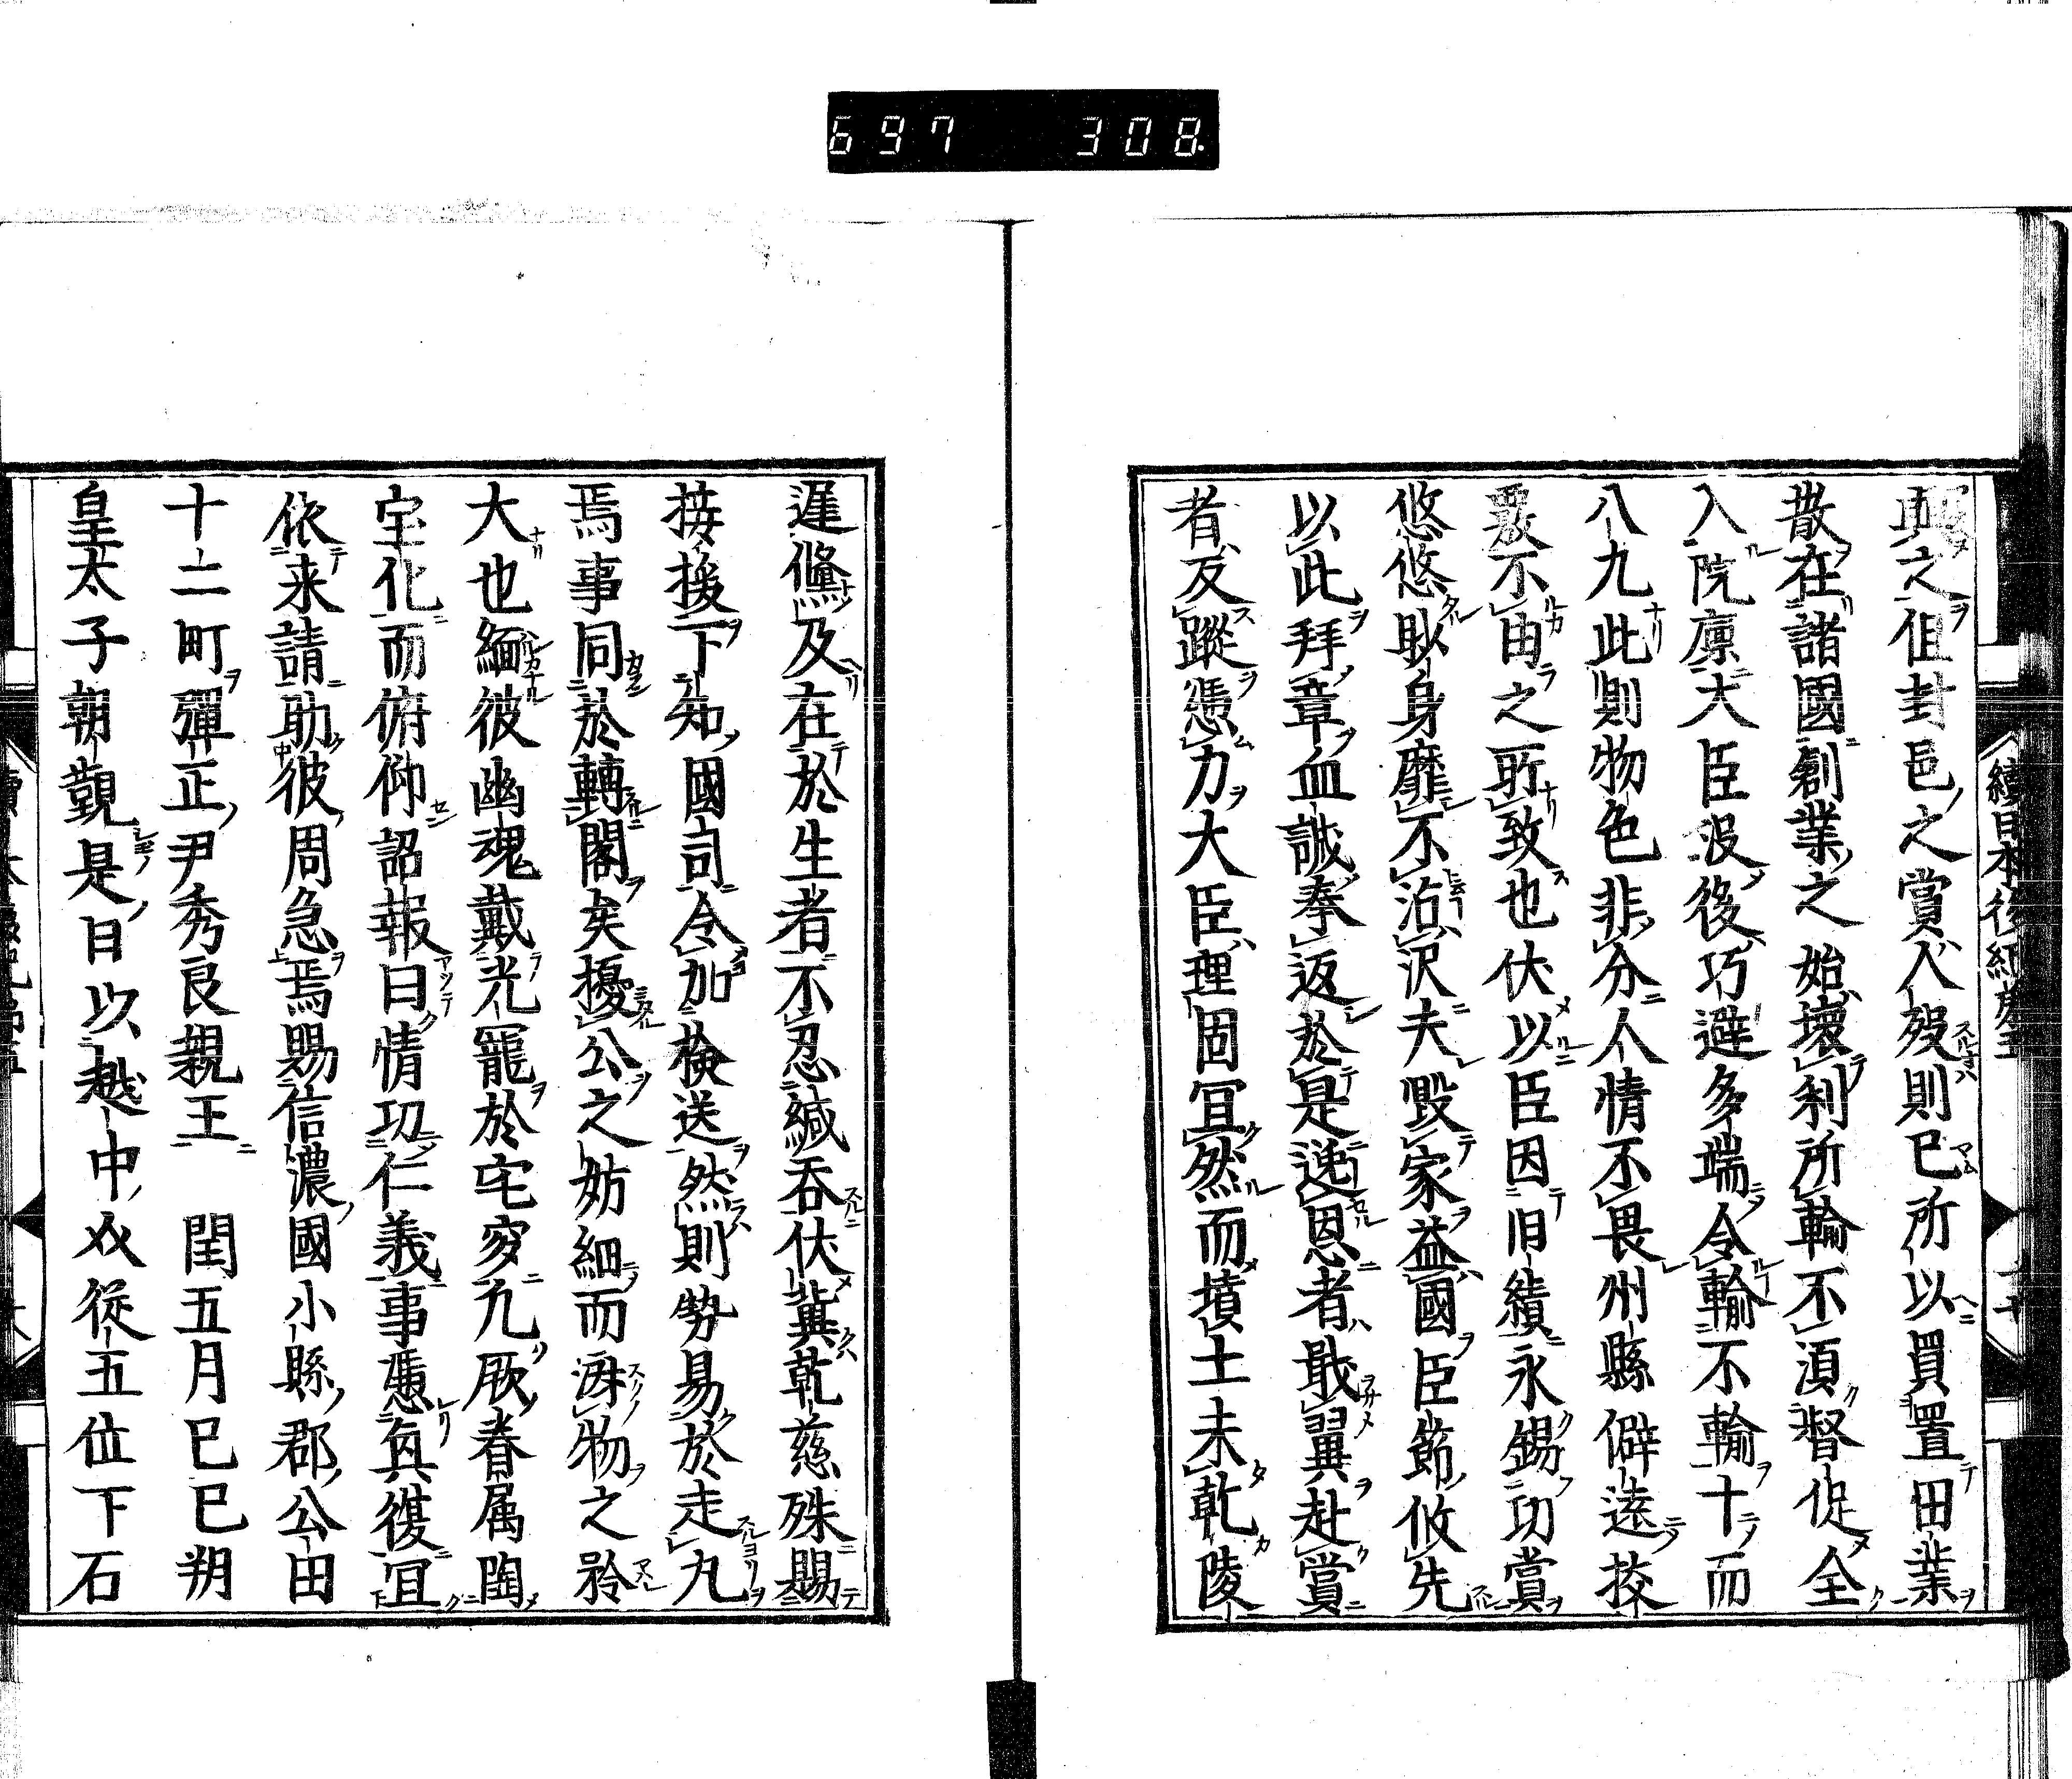 697 308.
續日本後紀
興之但封邑之賞人歿則已所以買置田業
散在諸國創業之始壞利所輸不湏督促全
入院廪大臣没後巧避多端令輸不輸十而
八九此則物色非分人情不畏州縣僻遠挍
覈不由之所致也伏以臣因旧績永錫功賞
悠悠眇身靡不沾沢夫毀家益國臣節攸先
以此拜章血誠奉返於是逸恩者戢翼赴賞
者反蹤憑力大臣理固冝然而墳土未乾陵
遲儵及在於生者不忍緘吞伏冀乾慈殊賜
接援下知國司令加検送然則勢易於走丸
焉事同於轉閣矣擾公之妨細而済物之矜
大也緬彼幽魂戴光寵於宅穸凢厥眷属陶
宇化而俯仰詔報曰情切仁義事憑匃復冝
依来請助彼周急焉賜信濃國小縣郡公田
十二町彈正尹秀良親王　閏五月巳巳朔
皇太子朝覲是日以越中介從五位下石